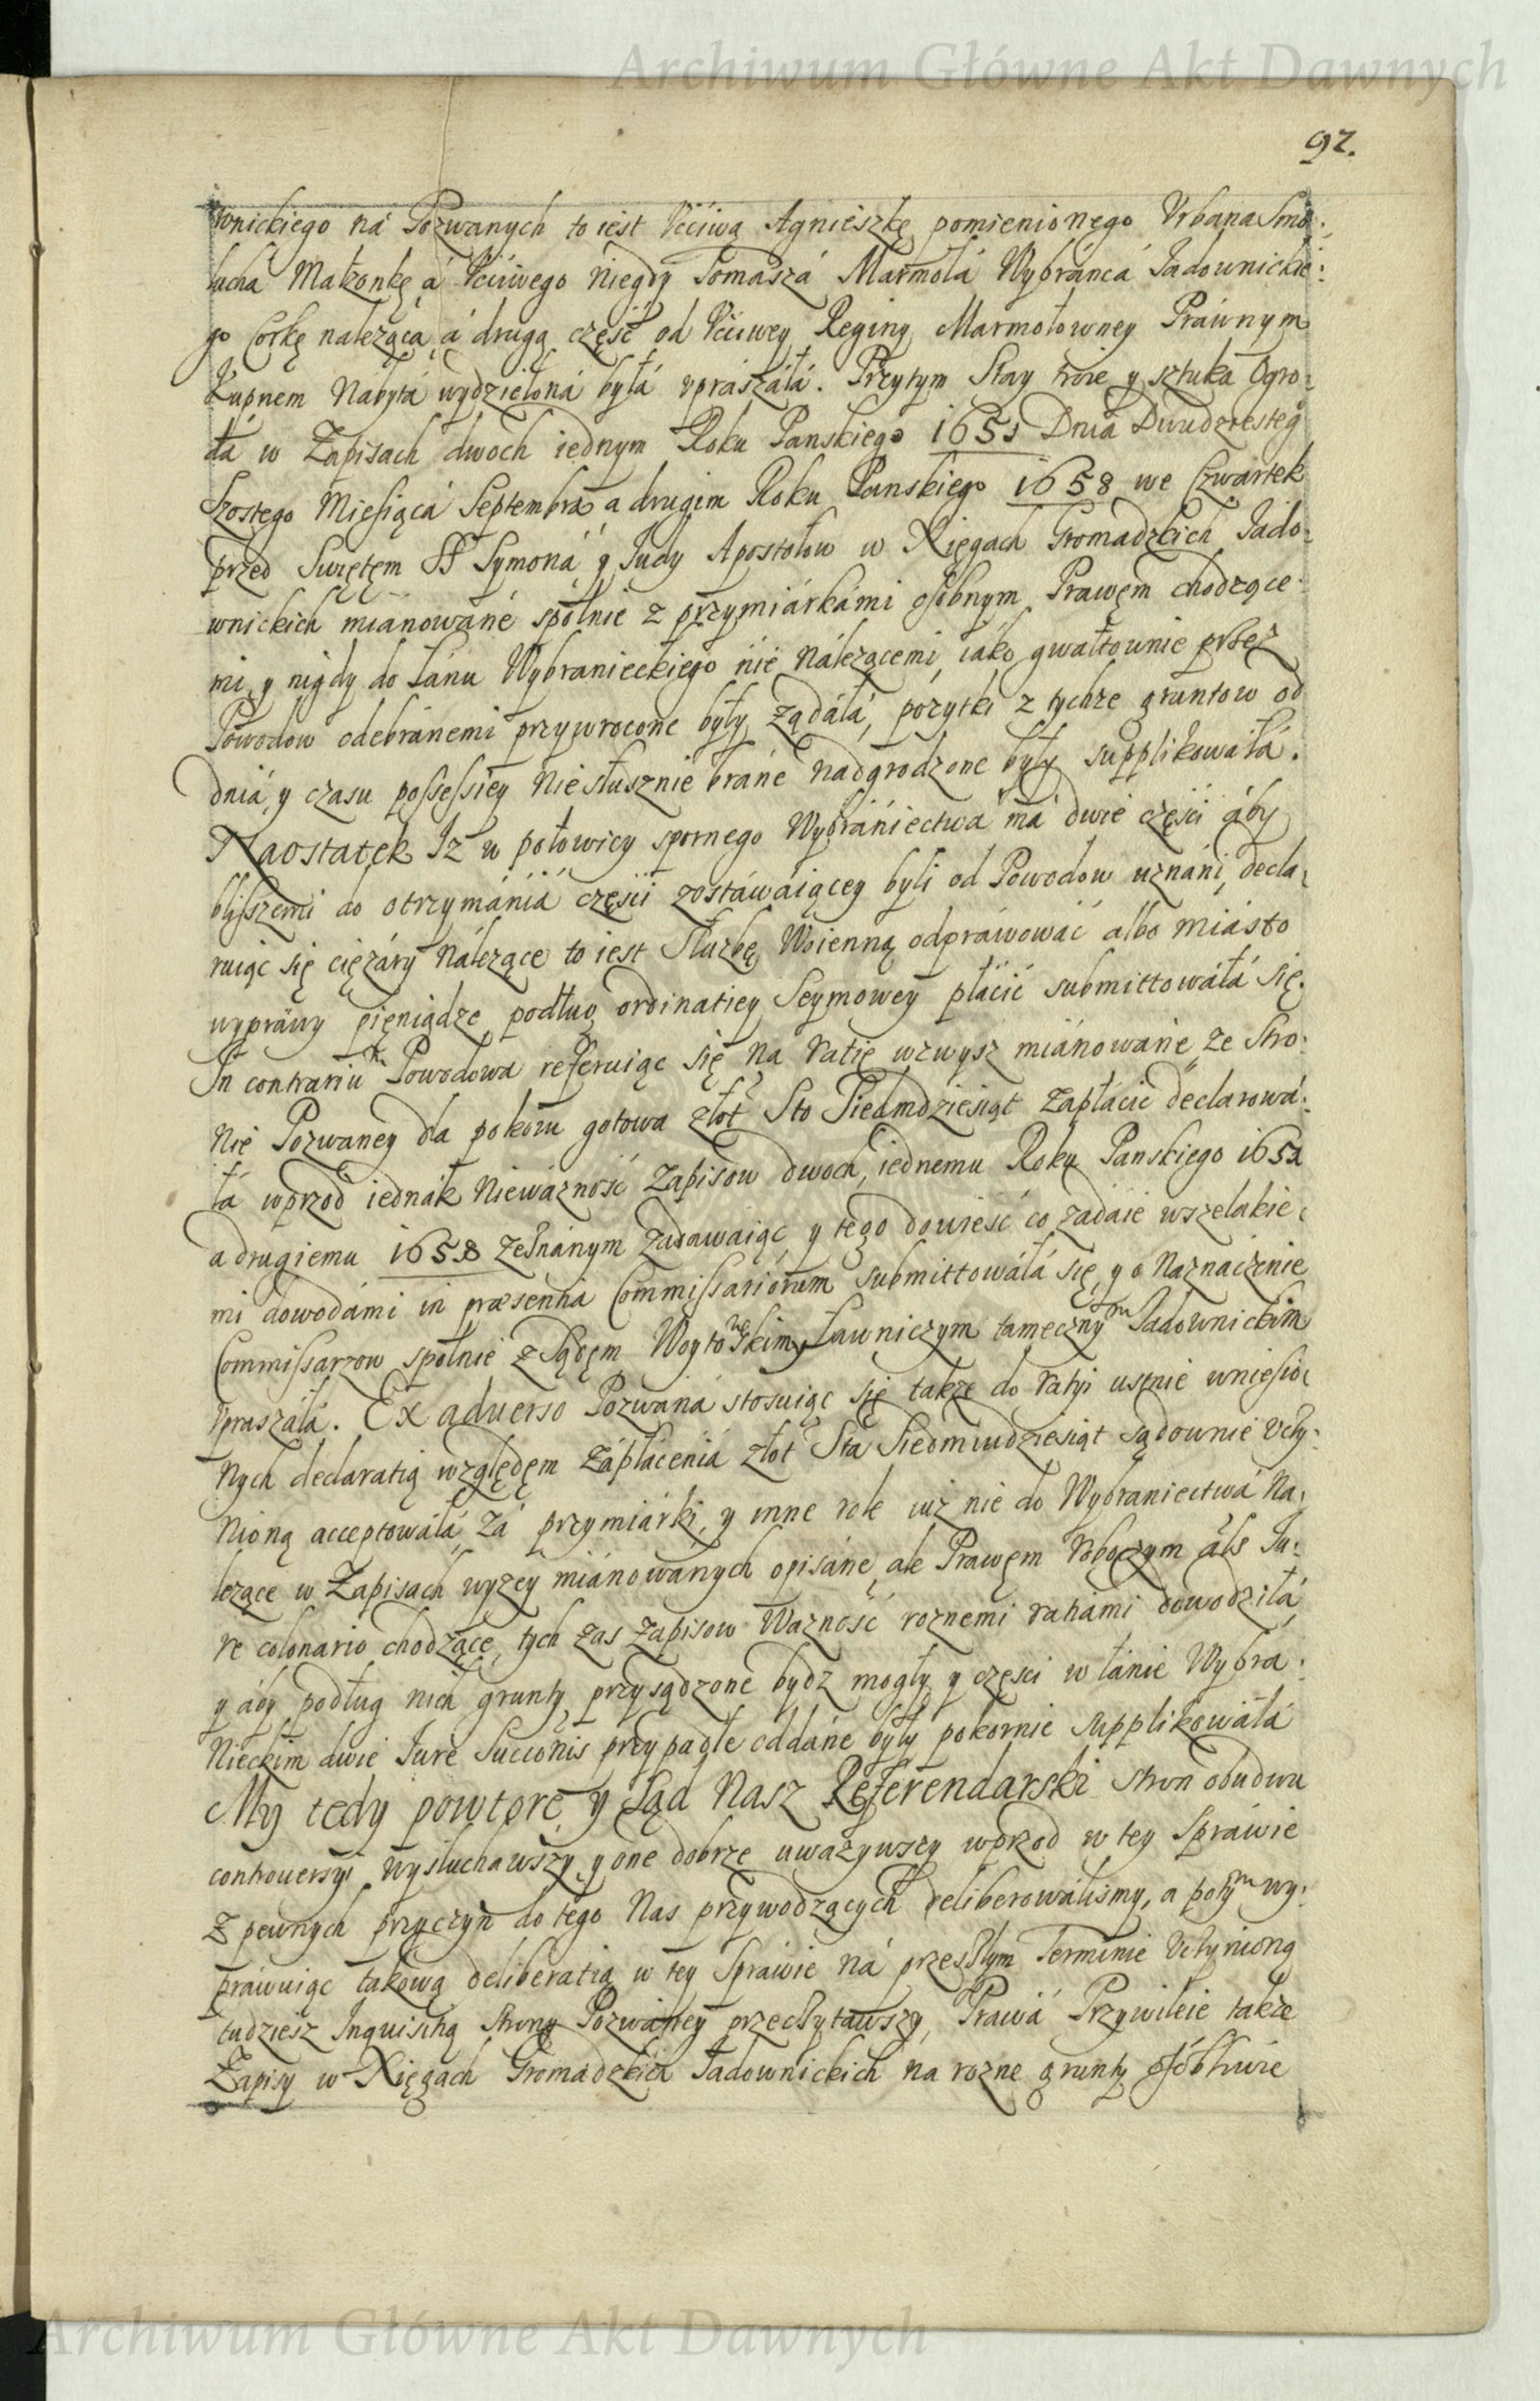 Archiwum Główne Akt Dawnych
92.
wnickiego ná Pozwanych to iest Vćiwą Agnieszkę pomienionego Vrbana Smo:
lucha Małżonkę á Vćiwego Niegdy Tomaszá Marmołá Wybráncá Jadownickie:
go Corkę należącą á drugą część od Vćiwey Reginy Marmołowney Práwnym
Kupnem Nabytá wydzieloná byłá vpraszáłá. Przytym Stay troie y sztuka Ogro:
dá w Zapisach dwoch iednym Roku Panskiego 1651 Dnia Dwudziesteg
Szostego Miesiącá Septembra a drugim Roku Panskiego 1658 we Czwartek
przed Swiętęm SS Symoná y Judy Apostołow w Xięgach Gromadzkich Jado:
wnickich mianowáne społnie z przymiárkámi osobnym Prawęm chodzące:
mi y nigdy do Łánu Wybranieckiego nie Náleżącemi iáko gwałtownie przez
Powodow odebránemi przywrocone były żądáłá, pożytki z tychże gruntow od
dniá y czasu possessiey Niesłusznie bráne nadgrodzone były supplikowáłá.
Naostatek Iż w połowicy spornego Wybrániectwá má dwie częśći áby
bliższemi do otrzymániá częśći zostáwáiącey byli od Powodow uznáni, decla:
ruiąc się ciężáry Náleżące to iest Służbę Woienną odpráwowáć albo miásto
wypráwy pięniądze podług ordinatiey Seymowey płácić submittowáłá się.
In contrariu Powodowa referuiąc się na ratię wzwysz miánowáne że Stro:
nie Pozwaney dla pokoiu gotowa złot Sto Siedmdziesiąt zapłácić declarowá:
łá wprzod iednák Nieważność zapisow dwoch, iednemu Roku Panskiego 1651
a drugiemu 1658 zeznánym zadawaiąc y tego dowieść co zadáie wszelákie:
mi dowodámi in præsentia Commissariorum submittowáłá się, y o Náznáczenie
Commissarzow społnie z Sądęm Woytowskim y Ławniczym tamecznym Jadownickim
vpraszáłá. Ex aduerso Pozwána stosuiąc się także do ratyi ustnie wniesio:
nych declaratią względęm zápłáceniá złot Stá Siedmiudziesiąt sądownie vczy:
nioną acceptowáłá, zá przymiárki, y inne role iuż nie do Wybraniectwá Na:
leżące w Zapisach wyżey miánowánych opisáne, ale Prawęm Robozym als Ju:
re colonario chodzące, tych zas zapisow Ważność roznemi ratiami dowodziłá
y áby podług nich grunty przysądzone bydz mogły y częśći w łánie Wybra:
nieckim dwie Jure Successionis przypadłe oddáne były pokornie supplikowáłá
My tedy powtore y Sąd Nasz Referendarski stron obudwu
controuersyi wysłuchawszy y one dobrze uważywszy wprzod w tey Spráwie
z pewnych przyczyn do tego Nas przywodzących deliberowáliśmy, a potym wy:
práwuiąc takową deliberatią w tey Spráwie ná przeszłym Terminie Vczynioną
tudziesz Inquisitią strony Pozwáney przeczytawszy, Prawá Przywileie także
Zapisy w Xięgach Gromadzkich Jadownickich na rozne grunty osobliwie
Archiwum Główne Akt Dawnych